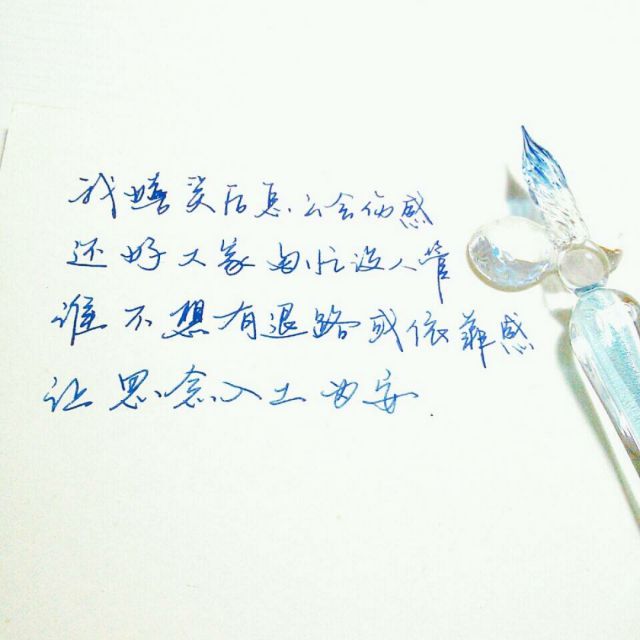 我嬉笑后怎么会伤感
还好大家匆忙没人管
谁不想有退路或依靠感
让思念入土为安